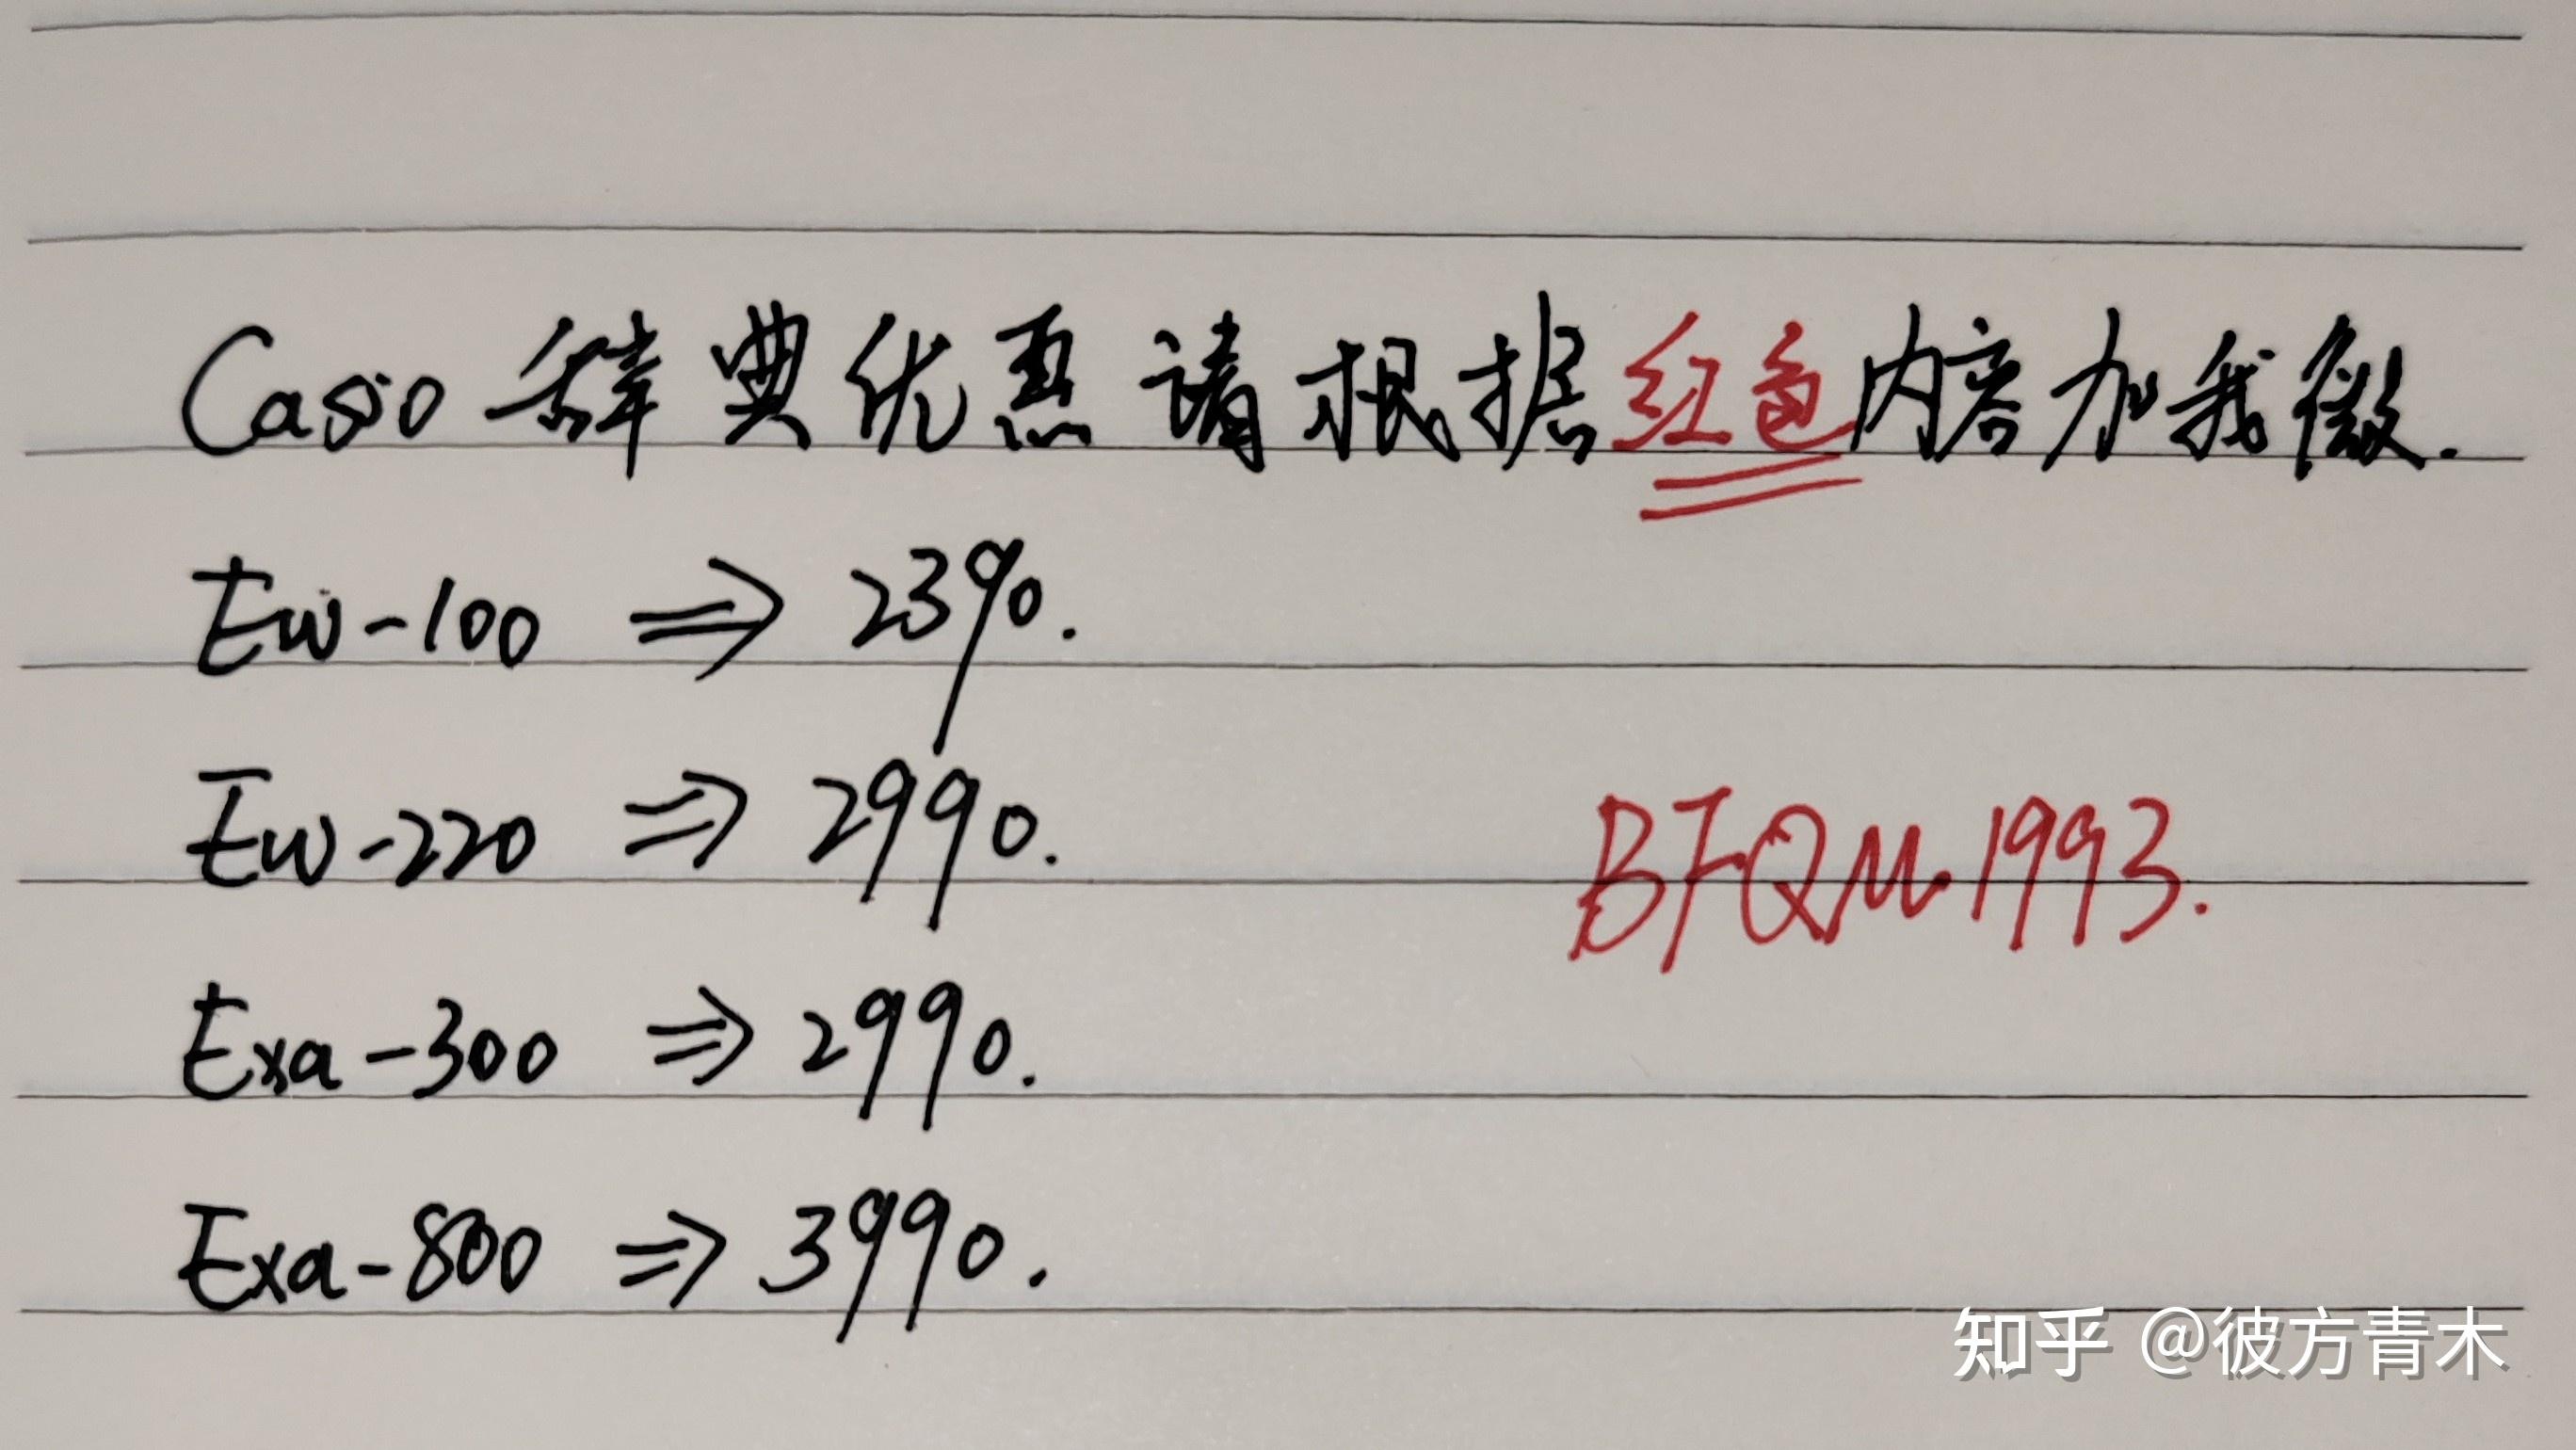 Casio 辞典优惠 请根据红色内容加我微.
Ew-100 ⇒ 2390.
Ew-220 ⇒ 2990.
BFQM1993.
Exa-300 ⇒ 2990.
Exa-800 ⇒ 3990.
知乎 @彼方青木